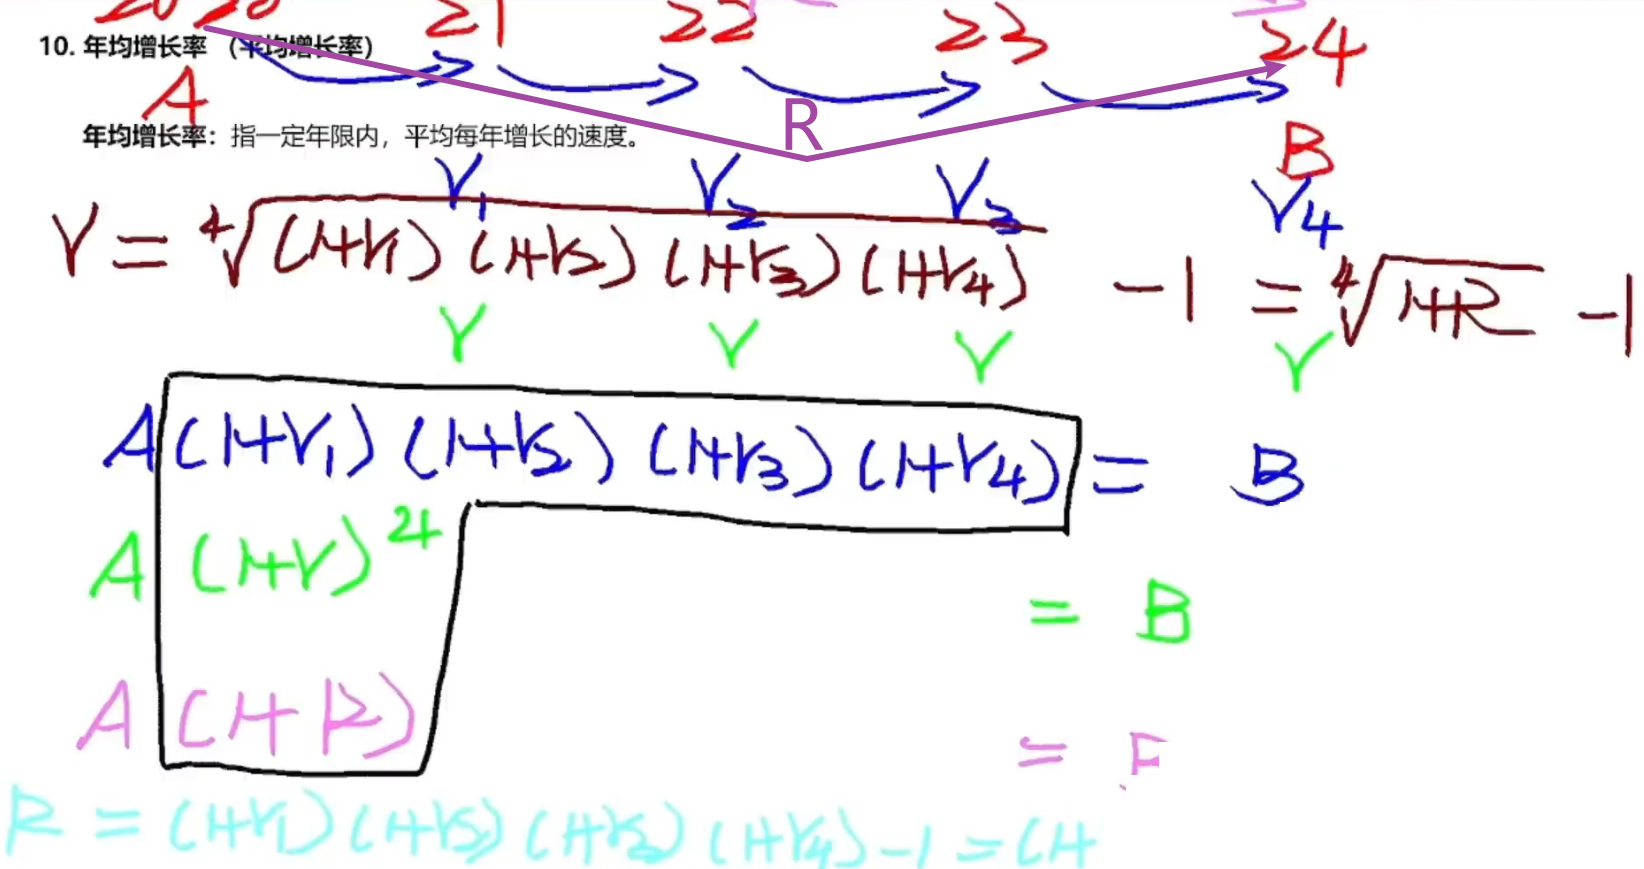 2020 21 22 23 24
10. 年均增长率 （平均增长率）
A
R
年均增长率：指一定年限内，平均每年增长的速度。
B
r₁ r₂ r₃ r₄
r = ⁴√(1+r₁)(1+r₂)(1+r₃)(1+r₄) -1 = ⁴√1+R -1
r r r r
A(1+r₁)(1+r₂)(1+r₃)(1+r₄) = B
A(1+r)⁴ = B
A(1+R) =
R = (1+r₁)(1+r₂)(1+r₃)(1+r₄)-1=(1+